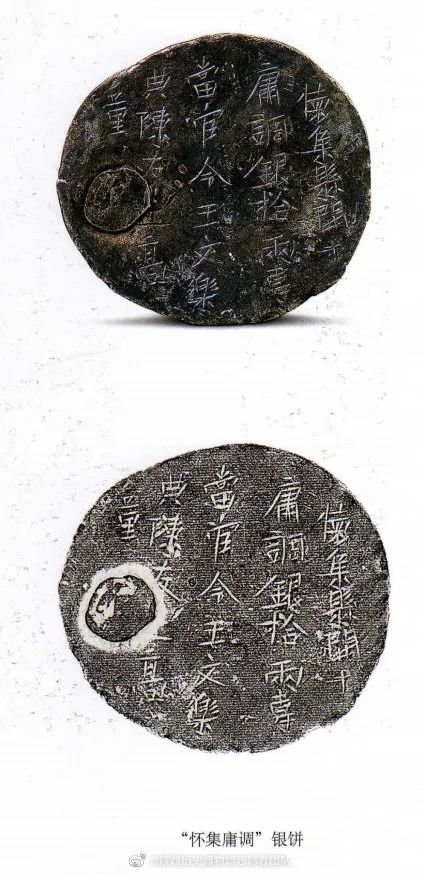 懷集縣開十
庸調銀拾兩專
當官令王文樂
典陳友匠高
童
懷集縣開十
庸調銀拾兩專
當官令王文樂
典陳友匠高
童
“怀集庸调”银饼
@陕西历史博物馆志愿者团队